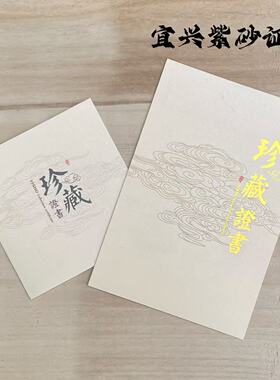 宜兴紫砂证
珍藏
證書
珍藏證書